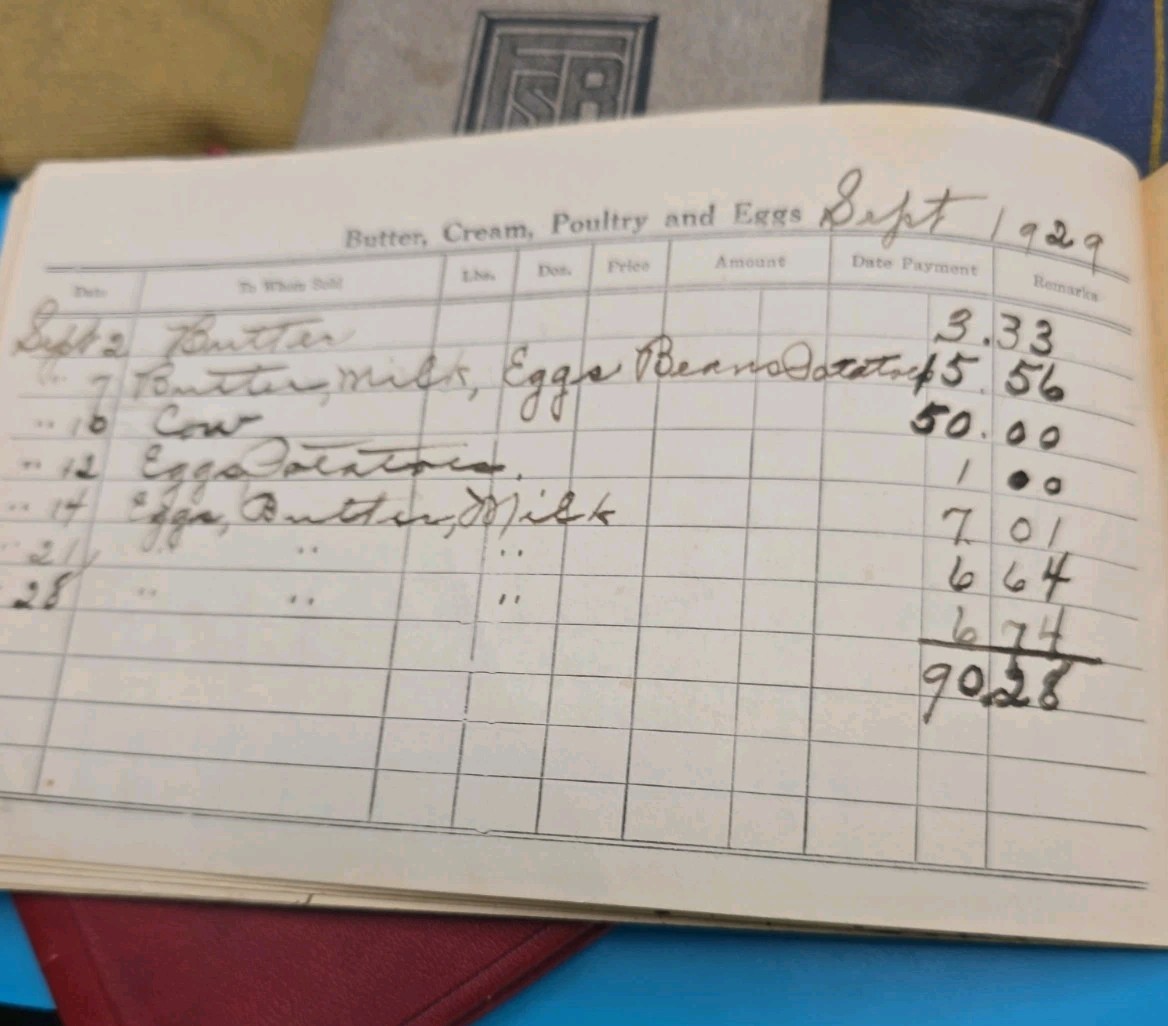 Butter, Cream, Poultry and Eggs Sept 1929
Date To Whom Sold Lbs. Doz. Price Amount Date Payment Remarks
Sept 2 Butter 3.33
" 7 Butter, Milk, Eggs Beans Potatoes 15 56
" 10 Cow 50.00
" 12 Eggs Potatoes. 1 00
" 14 Eggs, Butter, Milk 7 01
" 21 " " " 6 64
28 " " " 6 74
90.28